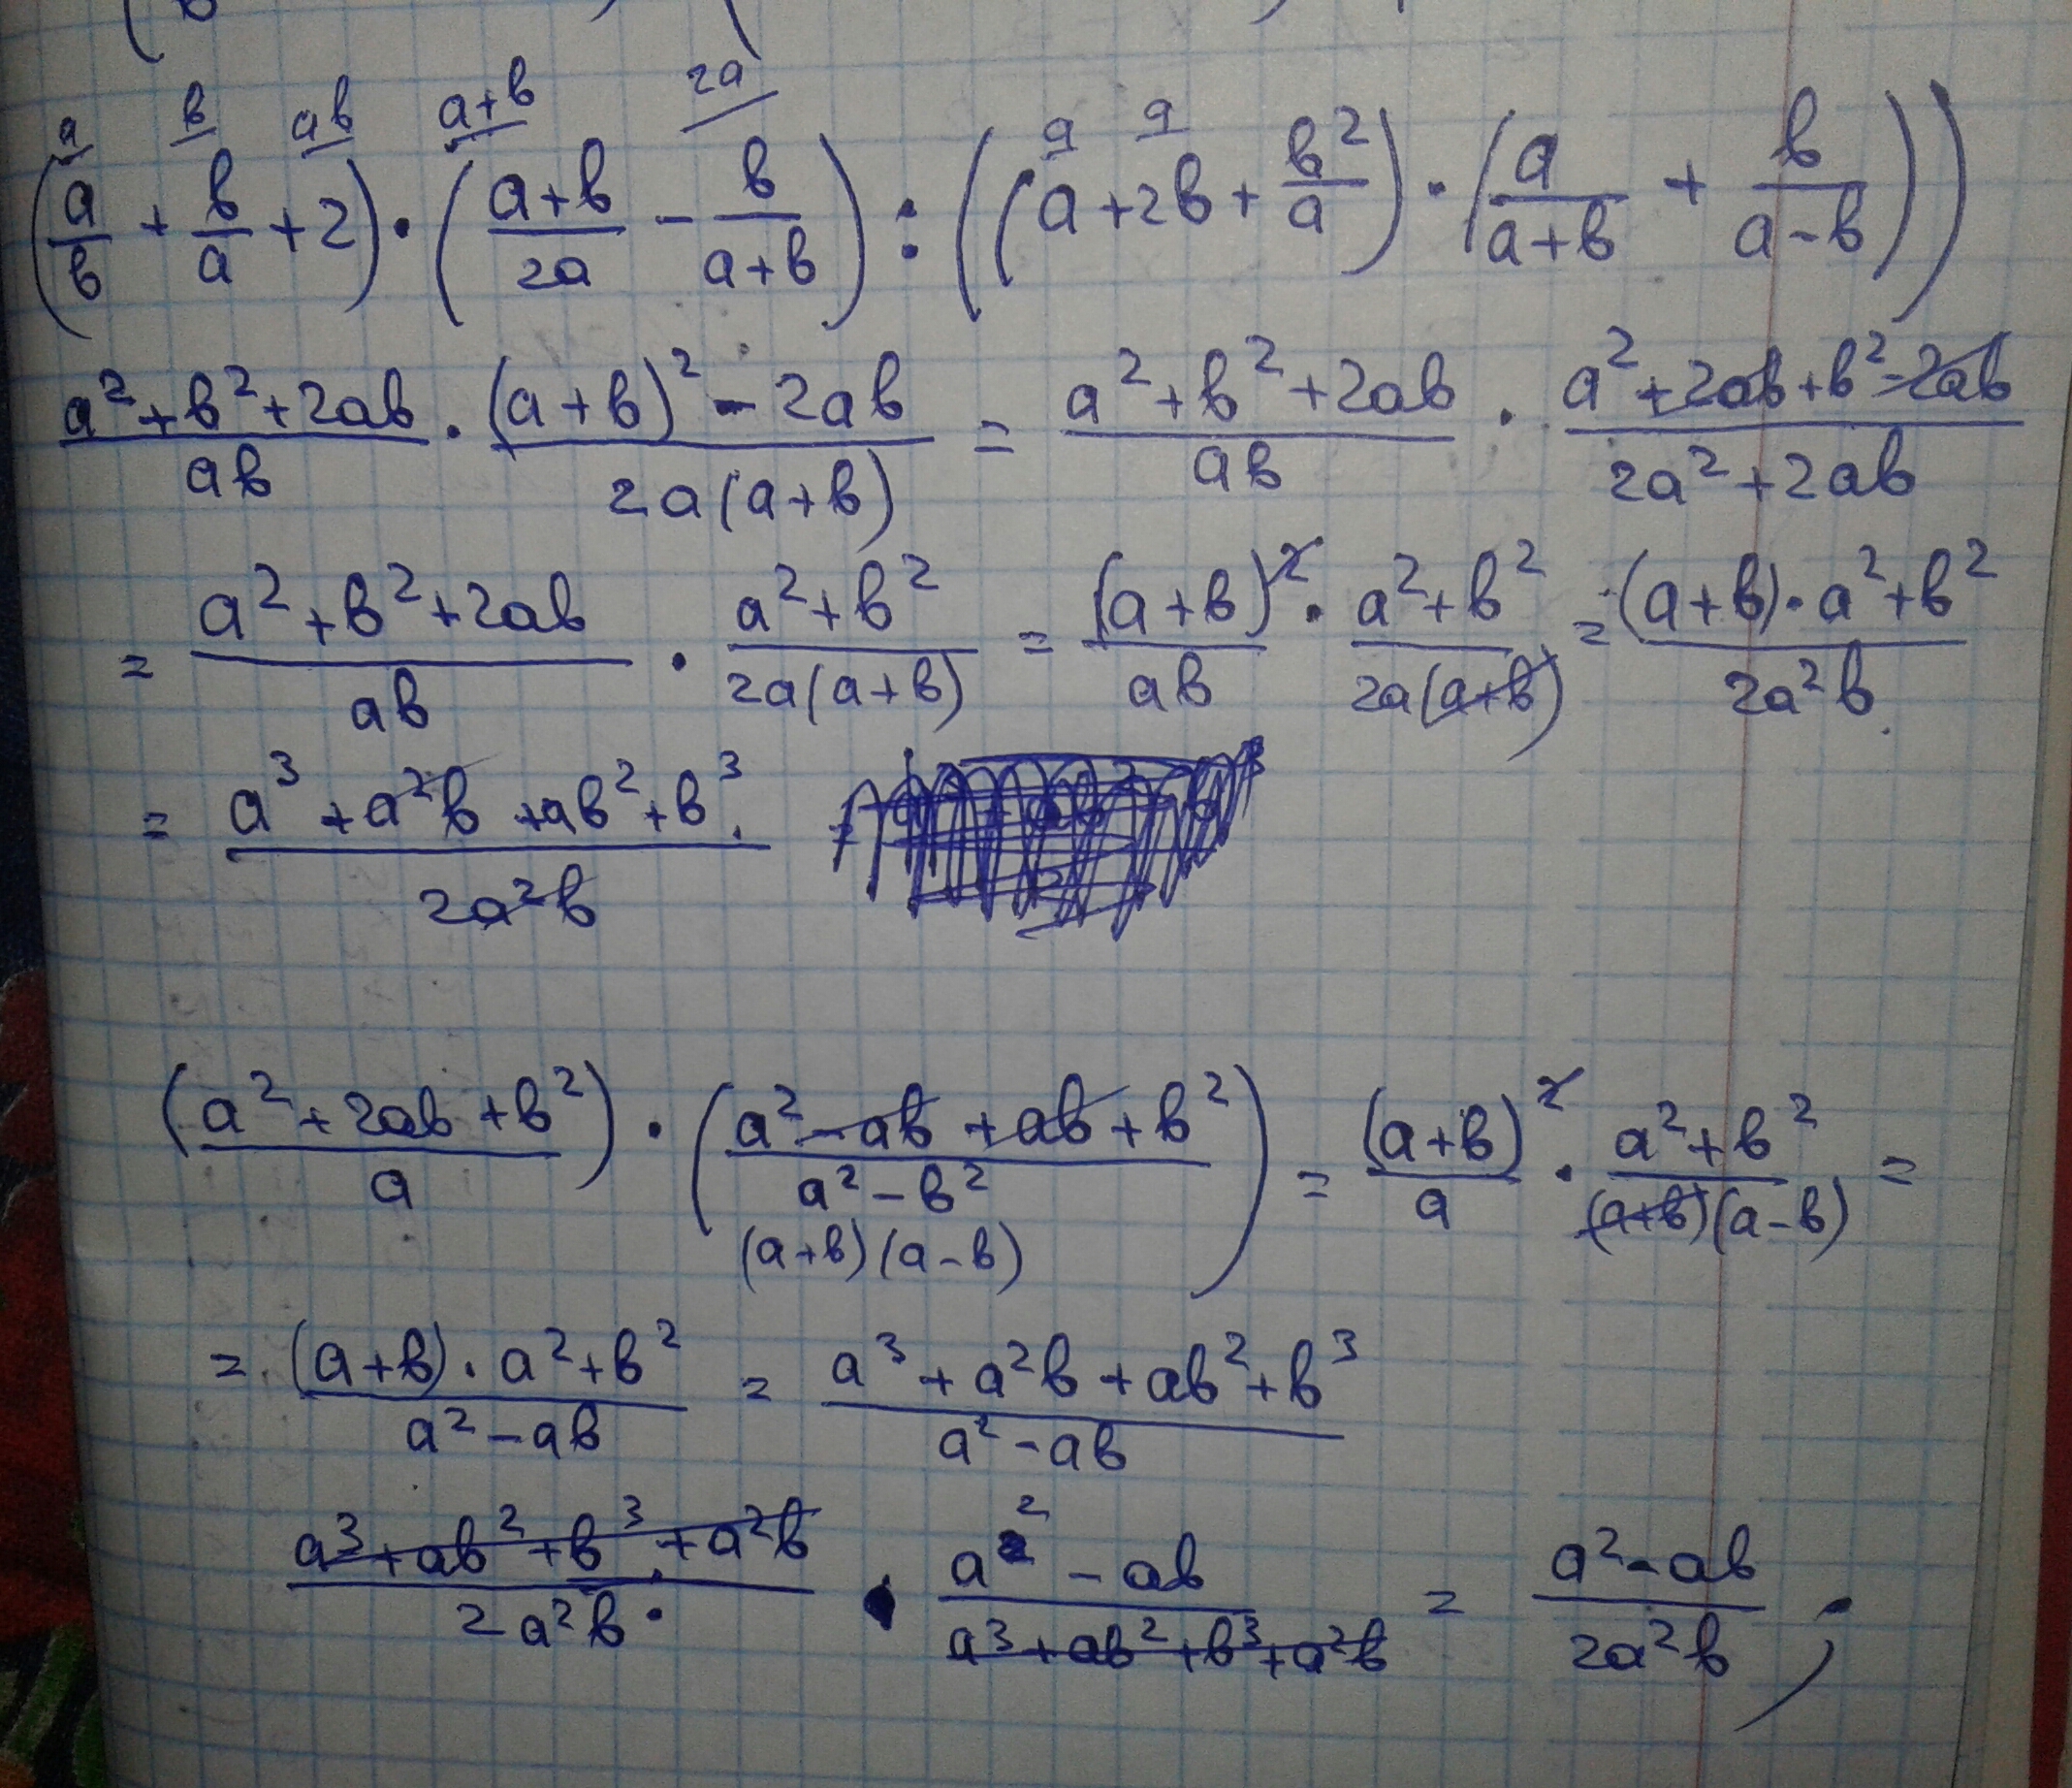 a b ab a+b 2a a a
(a/b + b/a + 2) · ((a+b)/2a - b/(a+b)) : ((a + 2b + b²/a) · (a/(a+b) + b/(a-b)))
(a²+b²+2ab)/ab · ((a+b)²-2ab)/2a(a+b) = (a²+b²+2ab)/ab · (a²+2ab+b²-2ab)/(2a²+2ab)
= (a²+b²+2ab)/ab · (a²+b²)/2a(a+b) = (a+b)²/ab · (a²+b²)/2a(a+b) = (a+b)·a²+b²/2a²b
= (a³+a²b+ab²+b³)/2a²b
((a²+2ab+b²)/a) · ((a²-ab+ab+b²)/(a²-b²)) = (a+b)²/a · (a²+b²)/(a+b)(a-b) =
(a+b)(a-b)
= (a+b)·a²+b²/(a²-ab) = (a³+a²b+ab²+b³)/(a²-ab)
(a³+ab²+b³+a²b)/2a²b · (a²-ab)/(a³+ab²+b³+a²b) = (a²-ab)/2a²b ;